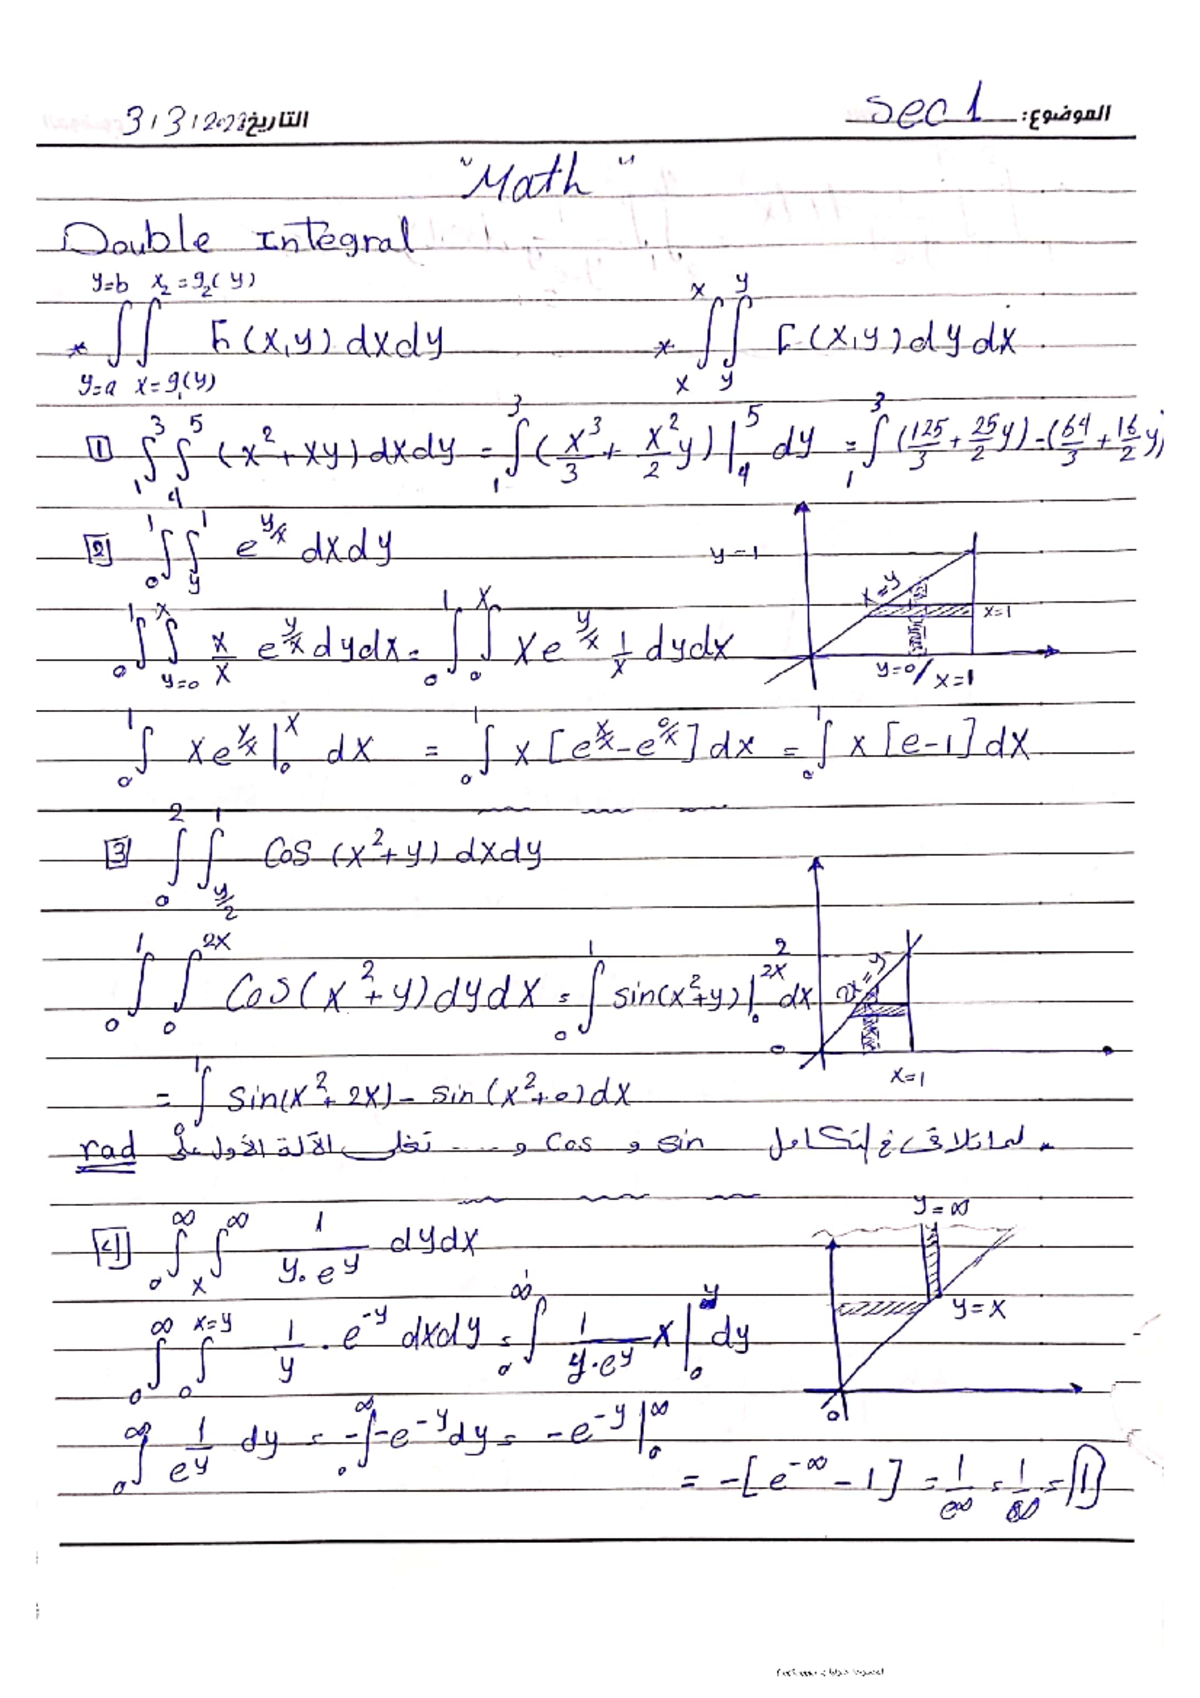 الموضوع: Sec 1 التاريخ 3 / 3 / 2023
"Math"
Double Integral
y=b x₂=g₂(y)
* ∫∫ F(x,y) dxdy * ∫∫ F(x,y) dy dx
y=a x=g₁(y) x y
[1] ∫₁³ ∫₄⁵ (x²+xy) dxdy = ∫₁³ (x³/3 + x²/2 y) |₄⁵ dy = ∫₁³ (125/3 + 25/2 y) - (64/3 + 16/2 y)
[2] ∫₀¹ ∫_y¹ e^(y/x) dxdy
y=1
x=y
x=1
y=0 / x=1
∫₀¹ ∫_(y=0)^x x/x e^(y/x) dydx = ∫₀¹ ∫₀^x x e^(y/x) 1/x dydx
∫₀¹ x e^(y/x) |₀^x dx = ∫₀¹ x [e^(x/x) - e^(0/x)] dx = ∫₀¹ x [e-1] dx
[3] ∫₀² ∫_(y/2)¹ cos (x²+y) dxdy
∫₀¹ ∫₀^(2x) cos(x²+y) dydx = ∫₀¹ sin(x²+y) |₀^(2x) dx
2
2x=y
0
x=1
= ∫₀¹ sin(x²+2x) - sin(x²+0) dx
- لما تلاقى فى التكامل sin و cos و .... تخلى الآلة الأول على rad
[4] ∫₀^∞ ∫_x^∞ 1/(y·e^y) dydx
y=∞
y=x
0
∫₀^∞ ∫₀^(x=y) 1/y · e^(-y) dxdy = ∫₀^∞ 1/(y·e^y) x |₀^y dy
∫₀^∞ 1/e^y dy = -∫₀^∞ -e^(-y) dy = -e^(-y) |₀^∞
= -[e^(-∞) - 1] = 1/e^∞ = 1/∞ = 1